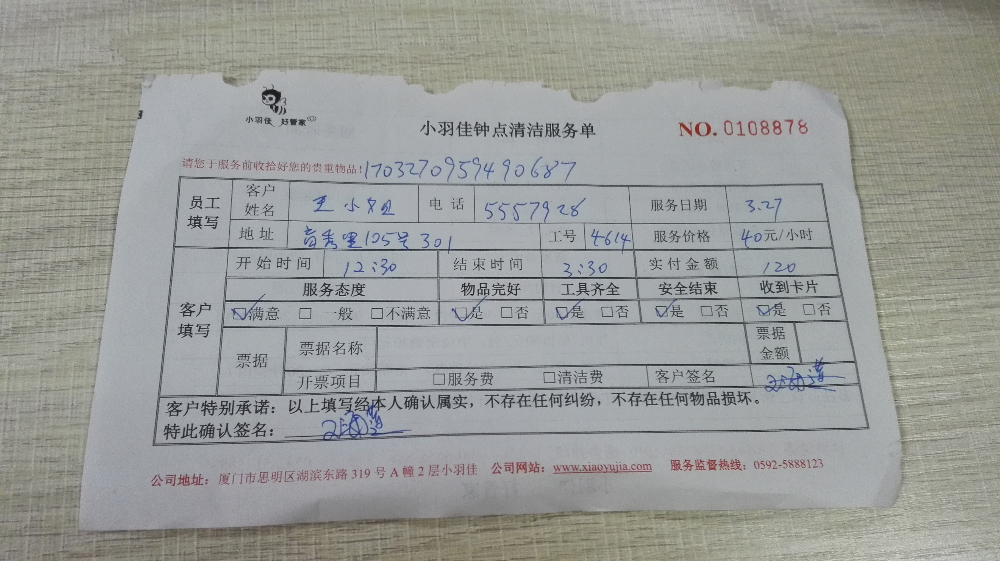 小羽佳 好管家
小羽佳钟点清洁服务单
NO. 0108878
请您于服务前收拾好您的贵重物品!
1703270959490687
员工填写 客户姓名 王小姐 电话 5557928 服务日期 3.27
地址 105号301 工号 4614 服务价格 40元/小时
客户填写 开始时间 12:30 结束时间 3:30 实付金额 120
服务态度 物品完好 工具齐全 安全结束 收到卡片
☑满意 □ 一般 □不满意 ☑是 □否 ☑是 □否 ☑是 □否 ☑是 □否
票据 票据名称 票据金额
开票项目 □服务费 □清洁费 客户签名
客户特别承诺:以上填写经本人确认属实,不存在任何纠纷,不存在任何物品损坏。
特此确认签名:
公司地址:厦门市思明区湖滨东路 319 号 A 幢 2 层小羽佳 公司网站:www.xiaoyujia.com 服务监督热线:0592-5888123